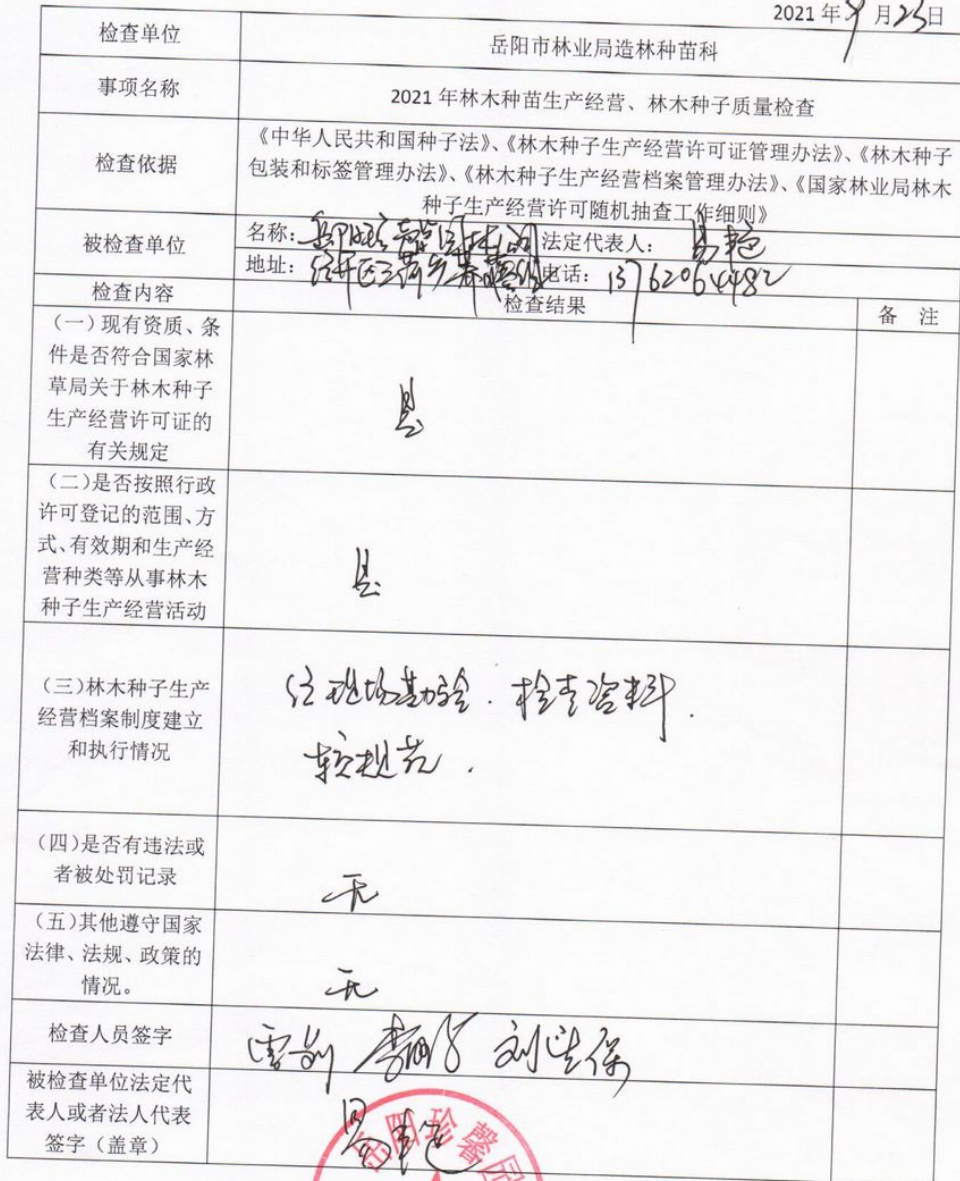 2021 年 9 月 23 日
检查单位
岳阳市林业局造林种苗科
事项名称
2021 年林木种苗生产经营、林木种子质量检查
检查依据
《中华人民共和国种子法》、《林木种子生产经营许可证管理办法》、《林木种子
包装和标签管理办法》、《林木种子生产经营档案管理办法》、《国家林业局林木
种子生产经营许可随机抽查工作细则》
被检查单位
名称： 法定代表人：易艳
地址： 电话：13762064482
检查内容
检查结果
备 注
（一）现有资质、条
件是否符合国家林
草局关于林木种子
生产经营许可证的
有关规定
是
（二）是否按照行政
许可登记的范围、方
式、有效期和生产经
营种类等从事林木
种子生产经营活动
是
（三）林木种子生产
经营档案制度建立
和执行情况
经现场勘验．检查资料．
较规范．
（四）是否有违法或
者被处罚记录
无
（五）其他遵守国家
法律、法规、政策的
情况。
无
检查人员签字
被检查单位法定代
表人或者法人代表
签字（盖章）
易艳
岳阳珍馨园